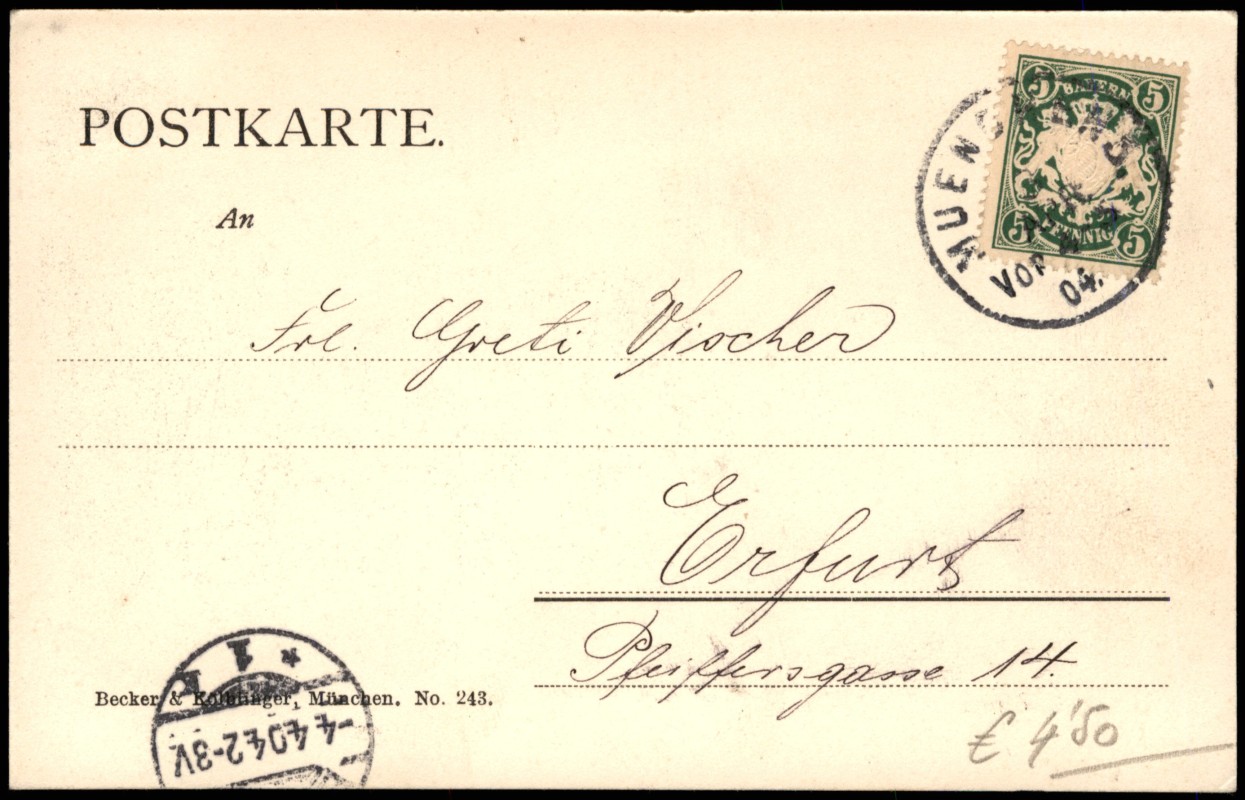 POSTKARTE.
5 BAYERN 5
5 PFENNIG 5
VOR
04.
An
Frl. Greti Vischer
Erfurt
Pfeiffersgasse 14.
* 1
Becker & Kölblinger, München. No. 243.
-4.4.04.2-3V.
€ 4'50